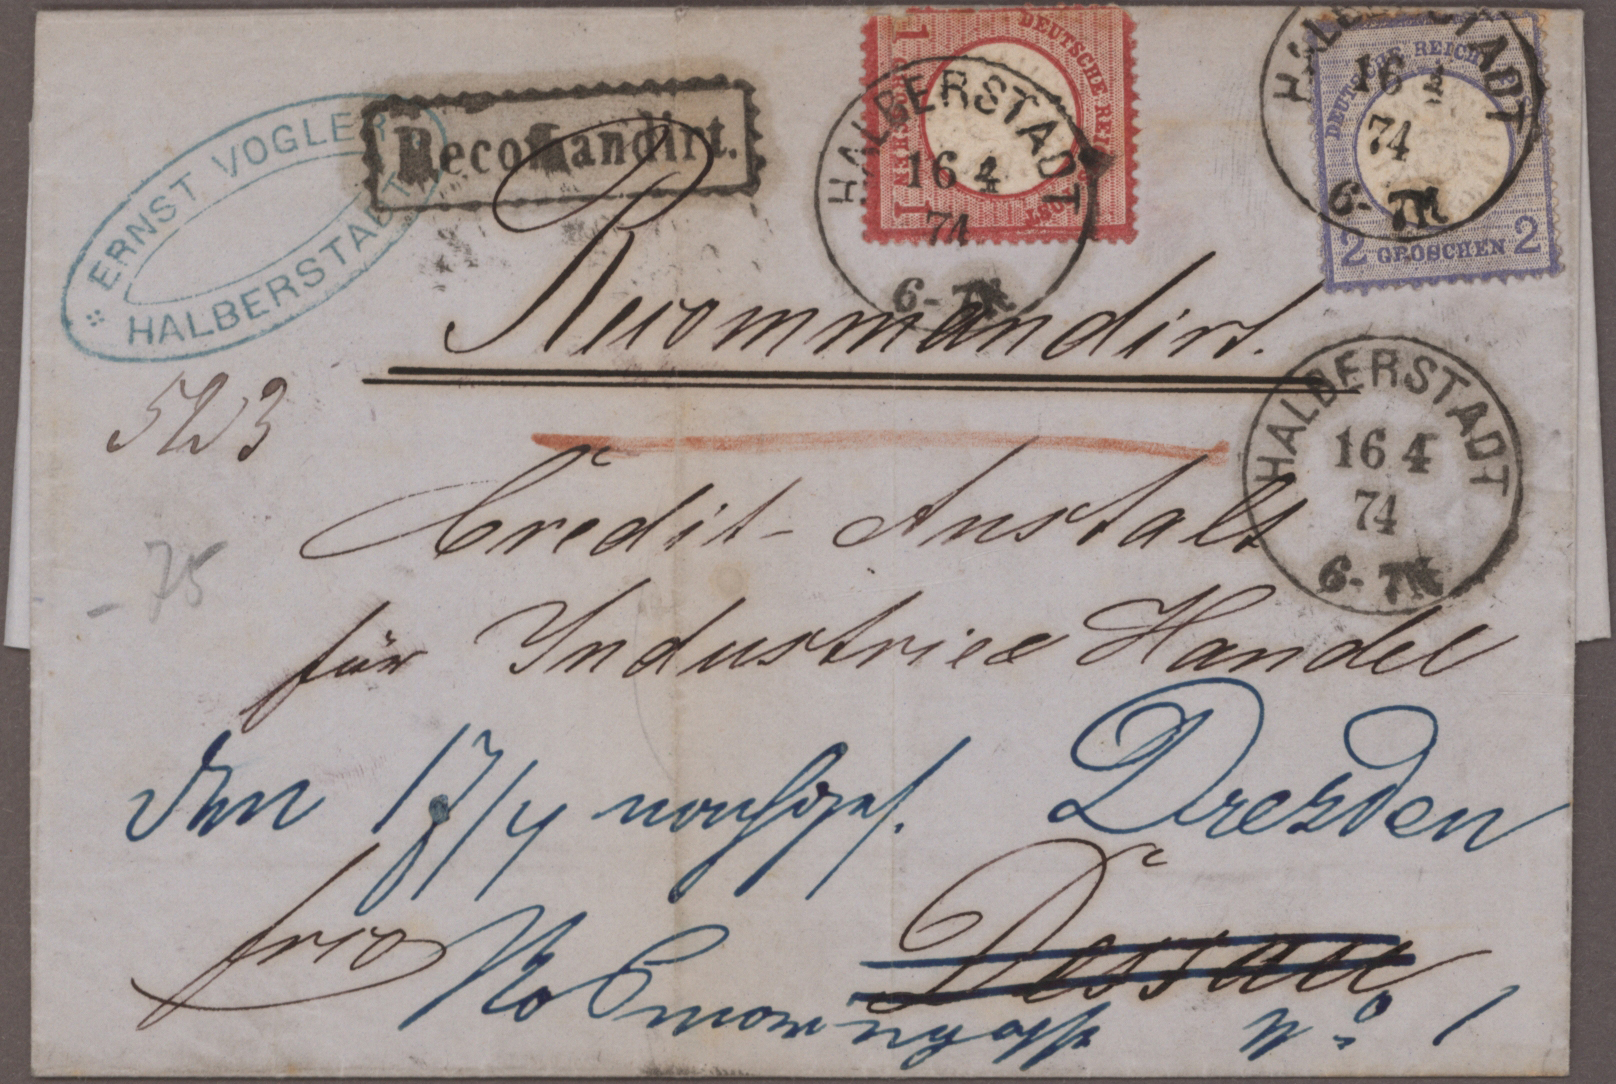 ERNST VOGLER
HALBERSTADT
Recomandirt.
1 DEUTSCHE REICHSPOST 1
GROSCHEN
HALBERSTADT
16 4
74
6-7N
DEUTSCHE REICHS
2 GROSCHEN 2
HALBERSTADT
16 4
74
6-7N
Recommandirt.
HALBERSTADT
16 4
74
6-7N
Credit-Anstalt
- 75
für Industrie & Handel
Den 17/4 nachges. Dresden
frco
Dessau
No 1